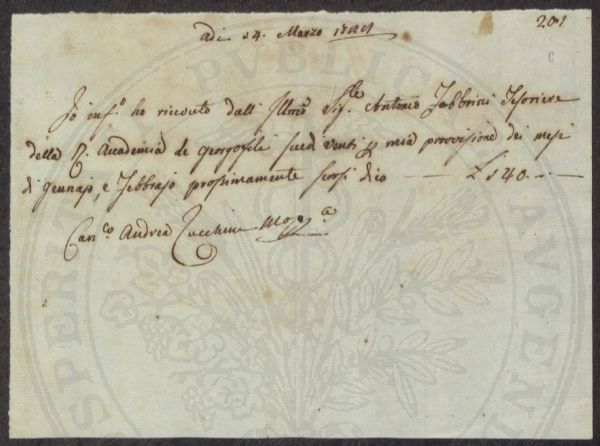 201
Adi 14. Marzo
Io inf.º ho ricevuto dall' Illmo Sig.re Antonio Fabbrini Tesoriere
della R. Accademia de Georgofili scudi venti p mia provisione dei mesi
di Gennajo, e Febbrajo prossimamente scorsi dico — £ 140. —
Can.co Andrea Zucchini
PUBLICAE
PROSPERITATI
AUGENDAE